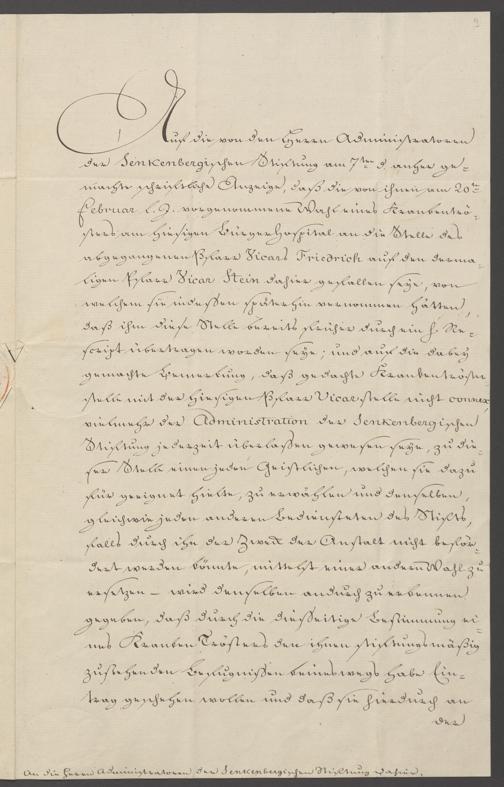 9
Auf die von den Herrn Administratoren
der Senkenbergischen Stiftung am 7ten d. anher ge-
machte schriftliche Anzeige, daß die von ihnen am 20ten
Februar l. J. vorgenommene Wahl eines Krankentrö-
sters am hiesigen Bürgerhospital an die Stelle des
abgegangenen Pfarr Vicars Friedrich auf den derma-
ligen Pfarr Vicar Stein dahier gefallen seye, von
welchem sie indessen späterhin vernommen hätten,
daß ihm diese Stelle bereits früher durch ein h. Re-
script übertragen worden seye; und auf die dabey
gemachte Bemerkung, daß gedachte Krankentröster
stelle mit der hiesigen Pfarr Vicarstelle nicht connex,
vielmehr der Administration der Senkenbergischen
Stiftung jederzeit überlassen gewesen seye, zu die-
ser Stelle einen jeden Geistlichen, welchen sie dazu
für geeignet hielte, zu erwählen und denselben,
gleichwie jeden anderen Bediensteten des Stifts,
falls durch ihn der Zweck der Anstalt nicht beför-
dert werden könnte, mittelst einer andern Wahl zu
ersetzen – wird denselben andurch zu erkennen
gegeben, daß durch die diesseitige Bestimmung ei-
nes Kranken Trösters den ihnen stiftungsmäßig
zustehenden Befugnissen keineswegs habe Ein-
trag geschehen wollen und daß sie hierdurch an
der
An die Herrn Administratoren der Senkenbergischen Stiftung dahier.